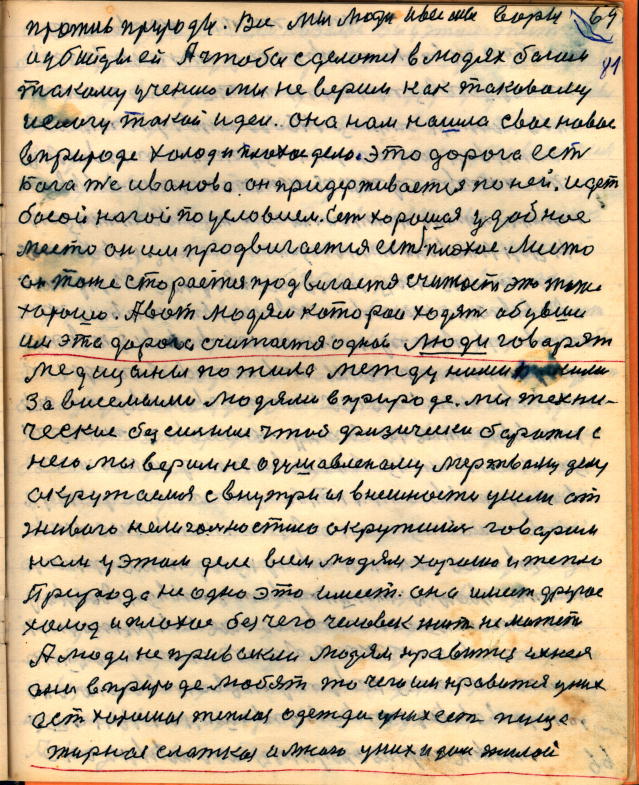 против природы. Все мы люди и все мы воры 69
и убийцы ей А чтобы сделался в людях богам 81
такому учению мы не верим как таковому
и самой такой идеи. она нам нашла свое новое
в природе холод и плохое дело. Это дорога ест
бога т е иванова он придерживается по ней. идет
босой нагой по условием. Ест хорошая удобное
место он им продвигается ест плохое место
он тоже старается продвигается считаеть это тоже
хорошо. А вот людям которои ходят обувши
им эта дорога считается одной люди говарят
медицины по жила между ними
За висемыми людями в природе. мы техни-
ческие безсильные чтоб физически боротся с
нею мы верим не одушавленаму мертвому делу
окружаемся с внутри и в внешности ушли от
живого окружили говарим
нам у этом деле всем людям хорошо и тепло
Природа не одно это имеет. она имеет другое
холод и плохое без чего человек жит не может
А люди не привыкли людям нравится ихнея
они в природе любят то чего им нравится у них
ест хорошая теплая одежда у них есть пища
жирная слаткая и много у них и дом жилой